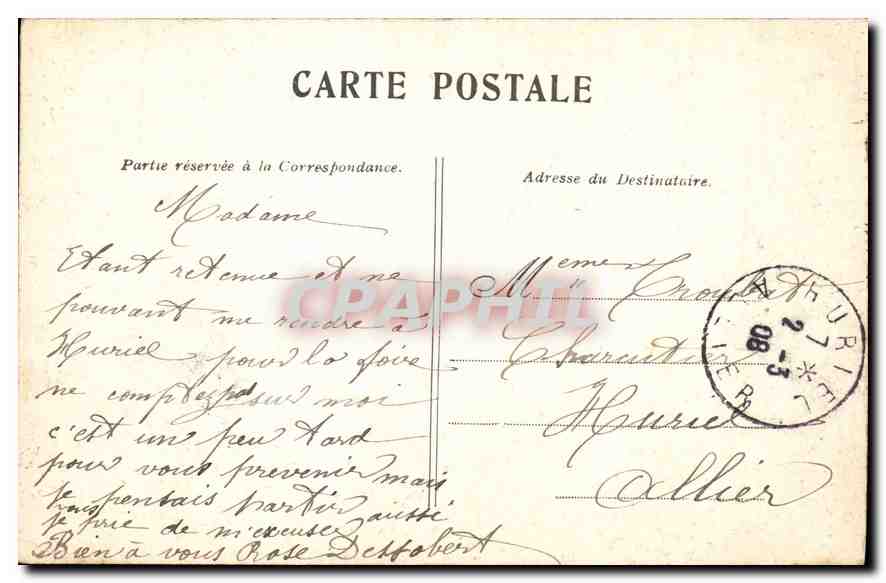 CARTE POSTALE
Partie réservée à la Correspondance.
Adresse du Destinataire.
Madame
Etant retenue et ne
pouvant me rendre à
Huriel pour la foire
ne comptez pas sur moi
c'est un peu tard
pour vous prevenir mais
je pensais partir aussi
je vous prie de m'excuser
Bien à vous Rose Dessobert
Meme Troubat
Charcutier
Huriel
Allier
HURIEL
ALLIER
7 *
2 -3
08
CPAPHIL